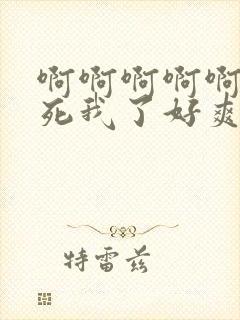 啊啊啊啊啊
死我了好爽
特雷兹